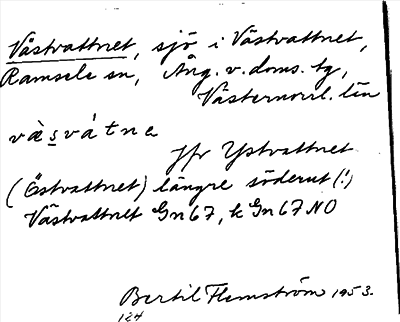 Västvattnet, sjö i Västvattnet,
Ramsele sn, Ång. v. doms. tg,
Västernorrl. län
vàs̱vátne
Jfr Ystvattnet
(Östvattnet) längre söderut (!)
Västvattnet Gn67, k Gn67 NO
Bertil Flemström 1953.
124